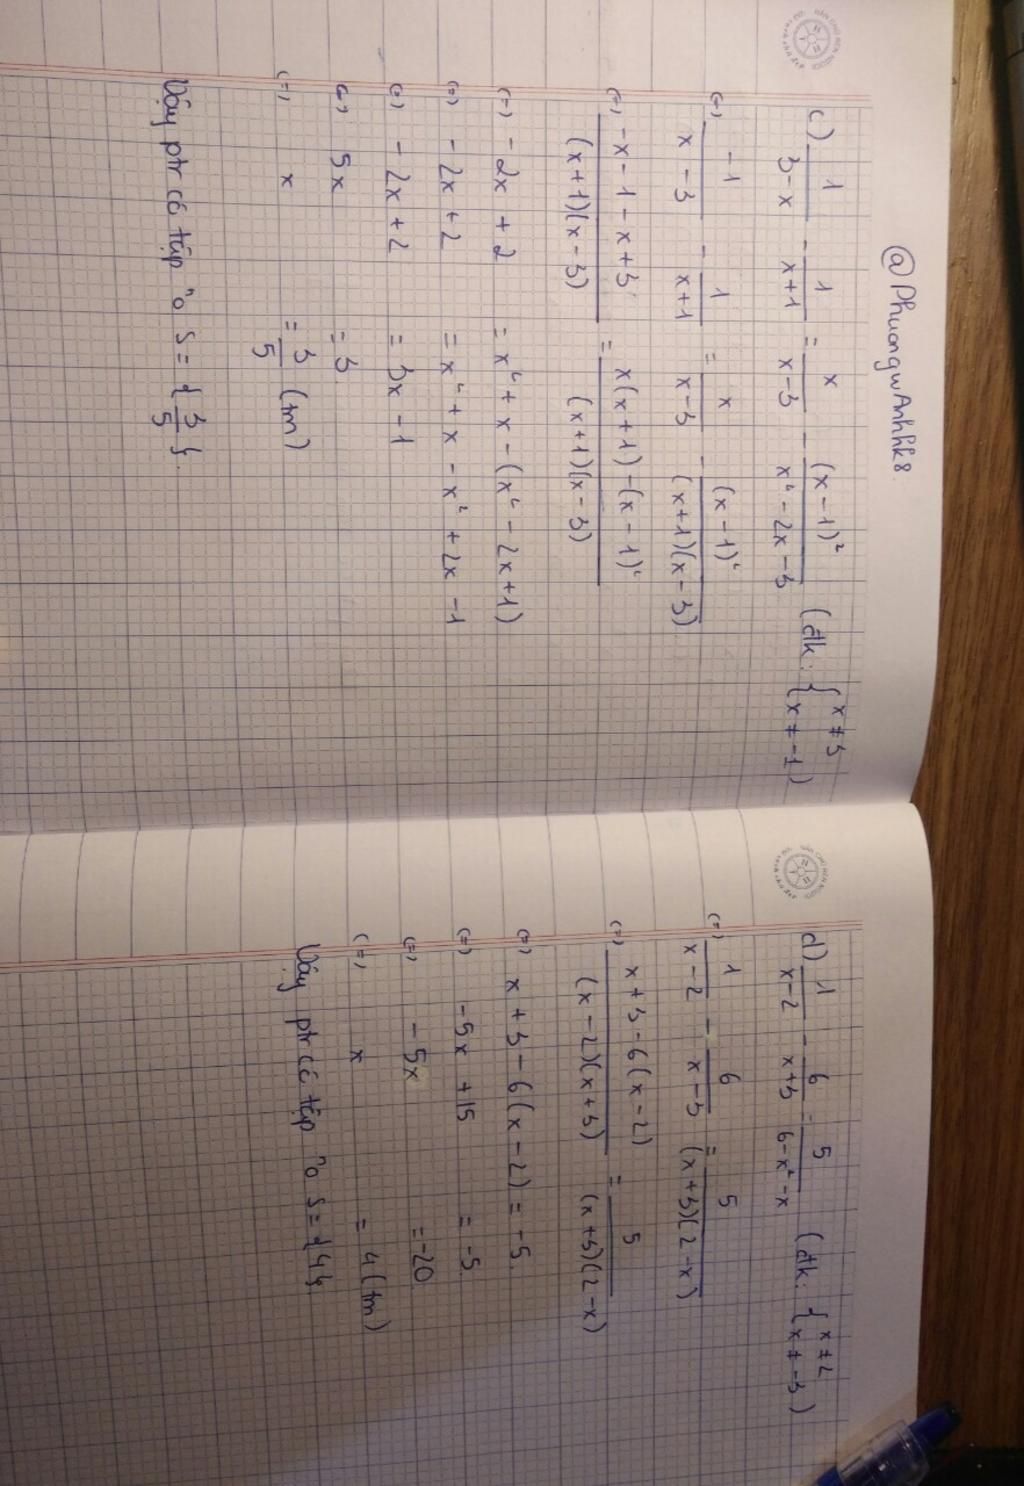 @PhuongwAnhhk8
c) 1/(3-x) - 1/(x+1) = x/(x-3) - (x-1)²/(x²-2x-3) (đk: { x≠3 x≠-1)
(=) -1/(x-3) - 1/(x+1) = x/(x-3) - (x-1)²/((x+1)(x-3))
(=) (-x-1-x+3)/((x+1)(x-3)) = (x(x+1)-(x-1)²)/((x+1)(x-3))
(=) -2x+2 = x²+x-(x²-2x+1)
(=) -2x+2 = x²+x-x²+2x-1
(=) -2x+2 = 3x-1
(=) 5x = 3
(=) x = 3/5 (tm)
Vậy ptr có tập n₀ S={3/5}.
d) 1/(x-2) - 6/(x+3) = 5/(6-x²-x) (đk: { x≠2 x≠-3)
(=) 1/(x-2) - 6/(x-3) = 5/((x+3)(2-x))
(=) (x+3-6(x-2))/((x-2)(x+3)) = 5/((x+3)(2-x))
(=) x+3-6(x-2) = -5.
(=) -5x+15 = -5
(=) -5x = -20
(=) x = 4 (tm)
Vậy ptr có tập n₀ S={4}.